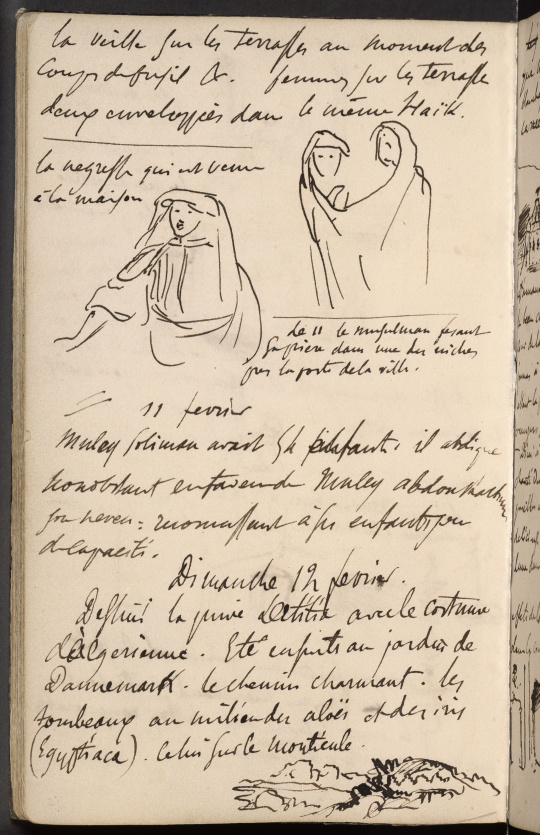 la veille sur les terrasses au moment des
coups de fusil &. femmes sur les terrasses
deux enveloppées dans le même Haïk.
la negresse qui est venue
à la maison
le 11 le musulman fesant
sa prière dans une des niches
près la porte de la ville.
11 fevrier
Muley Soliman avait 54 enfants. il abdiqua
nonobstant en faveur de Muley abdou
son neveu: reconnaissant à ses enfants peu
de capacité.
Dimanche 12 fevrier.
Dessiné la juive Létitia avec le costume
d'algerienne. Eté ensuite au jardin de
Dannemark. le chemin charmant. les
tombeaux au milieu des aloës et des iris
(Egyptiaca). celui sur le monticule.